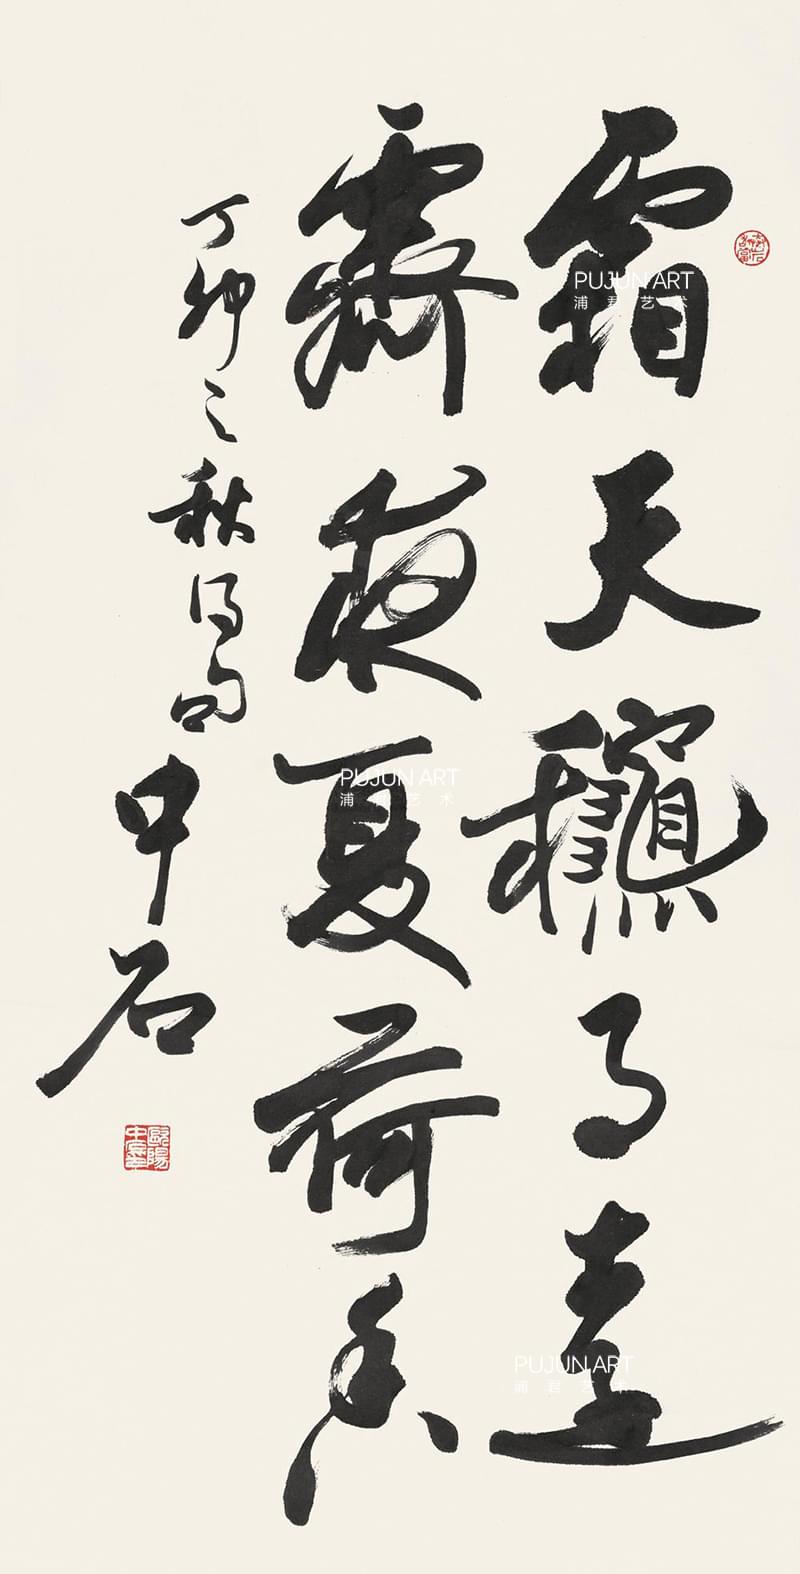 霜天龝遠
霽夜夏荷香
丁卯之秋得句
中石
歐陽
PUJUN ART
浦君艺术
PUJUN ART
浦君艺术
PUJUN ART
浦君艺术